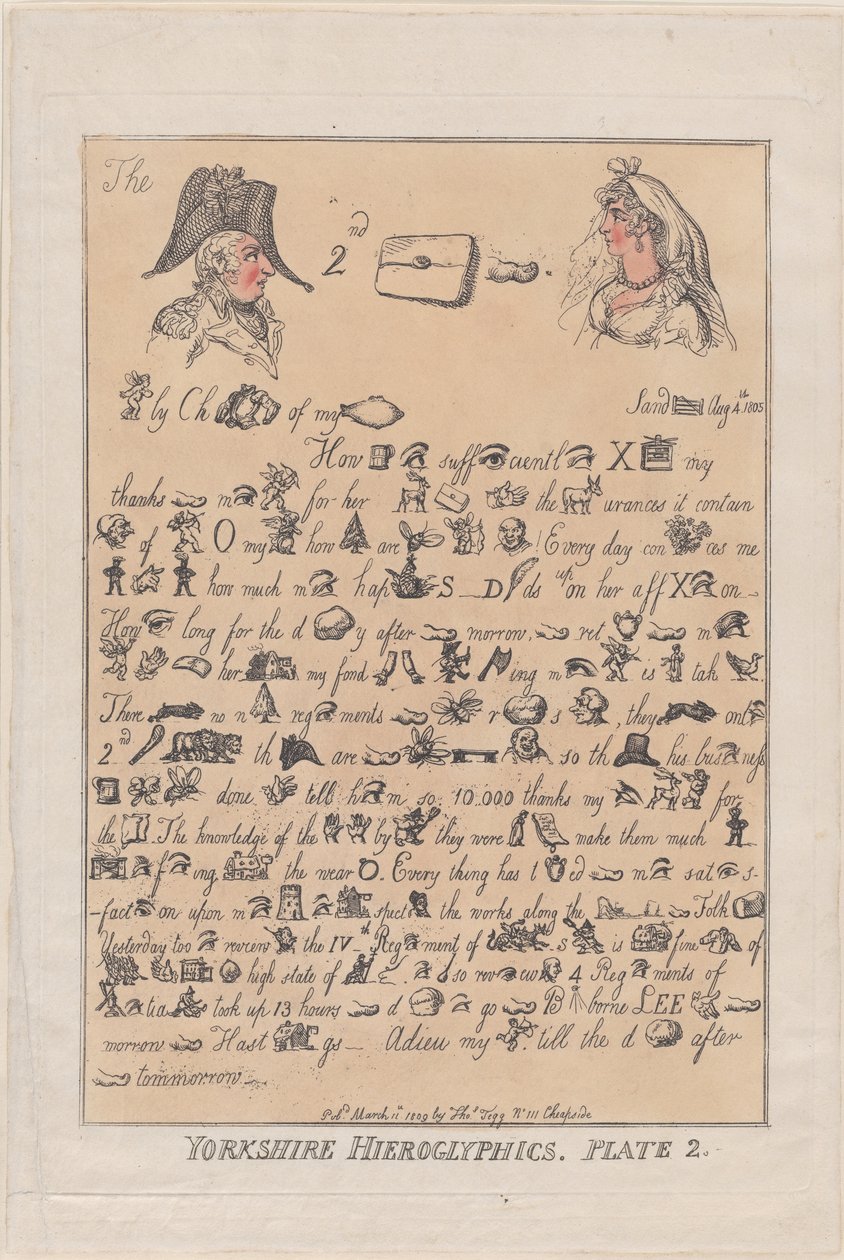 The 2nd
ly Ch of my Sand Aug 4th 1805
How suff cientl X my
thanks m for her the urances it contain
of O my how are ! Every day con ces me
how much m hap S D ds up on her aff X on
How long for the d y after morrow, ret m
her my fond ing m is tak
There no n reg ments r s , they onl
2nd th are so th his bus ness
done tell h m so 10.000 thanks my for
the . The knowledge of the by they were make them much
f ing the wear O. Every thing has t ed m sat s-
-fact on upon m spect the works along the Folk
Yesterday too review the IVth Reg ment of s is fine of
high state of . so rev ew 4 Reg ments of
tia took up 13 hours d go B borne LEE
morrow Hast gs Adieu my till the d after
tommorrow
Pub.d March 11th 1809 by Tho.s Tegg No 111 Cheapside
YORKSHIRE HIEROGLYPHICS. PLATE 2.